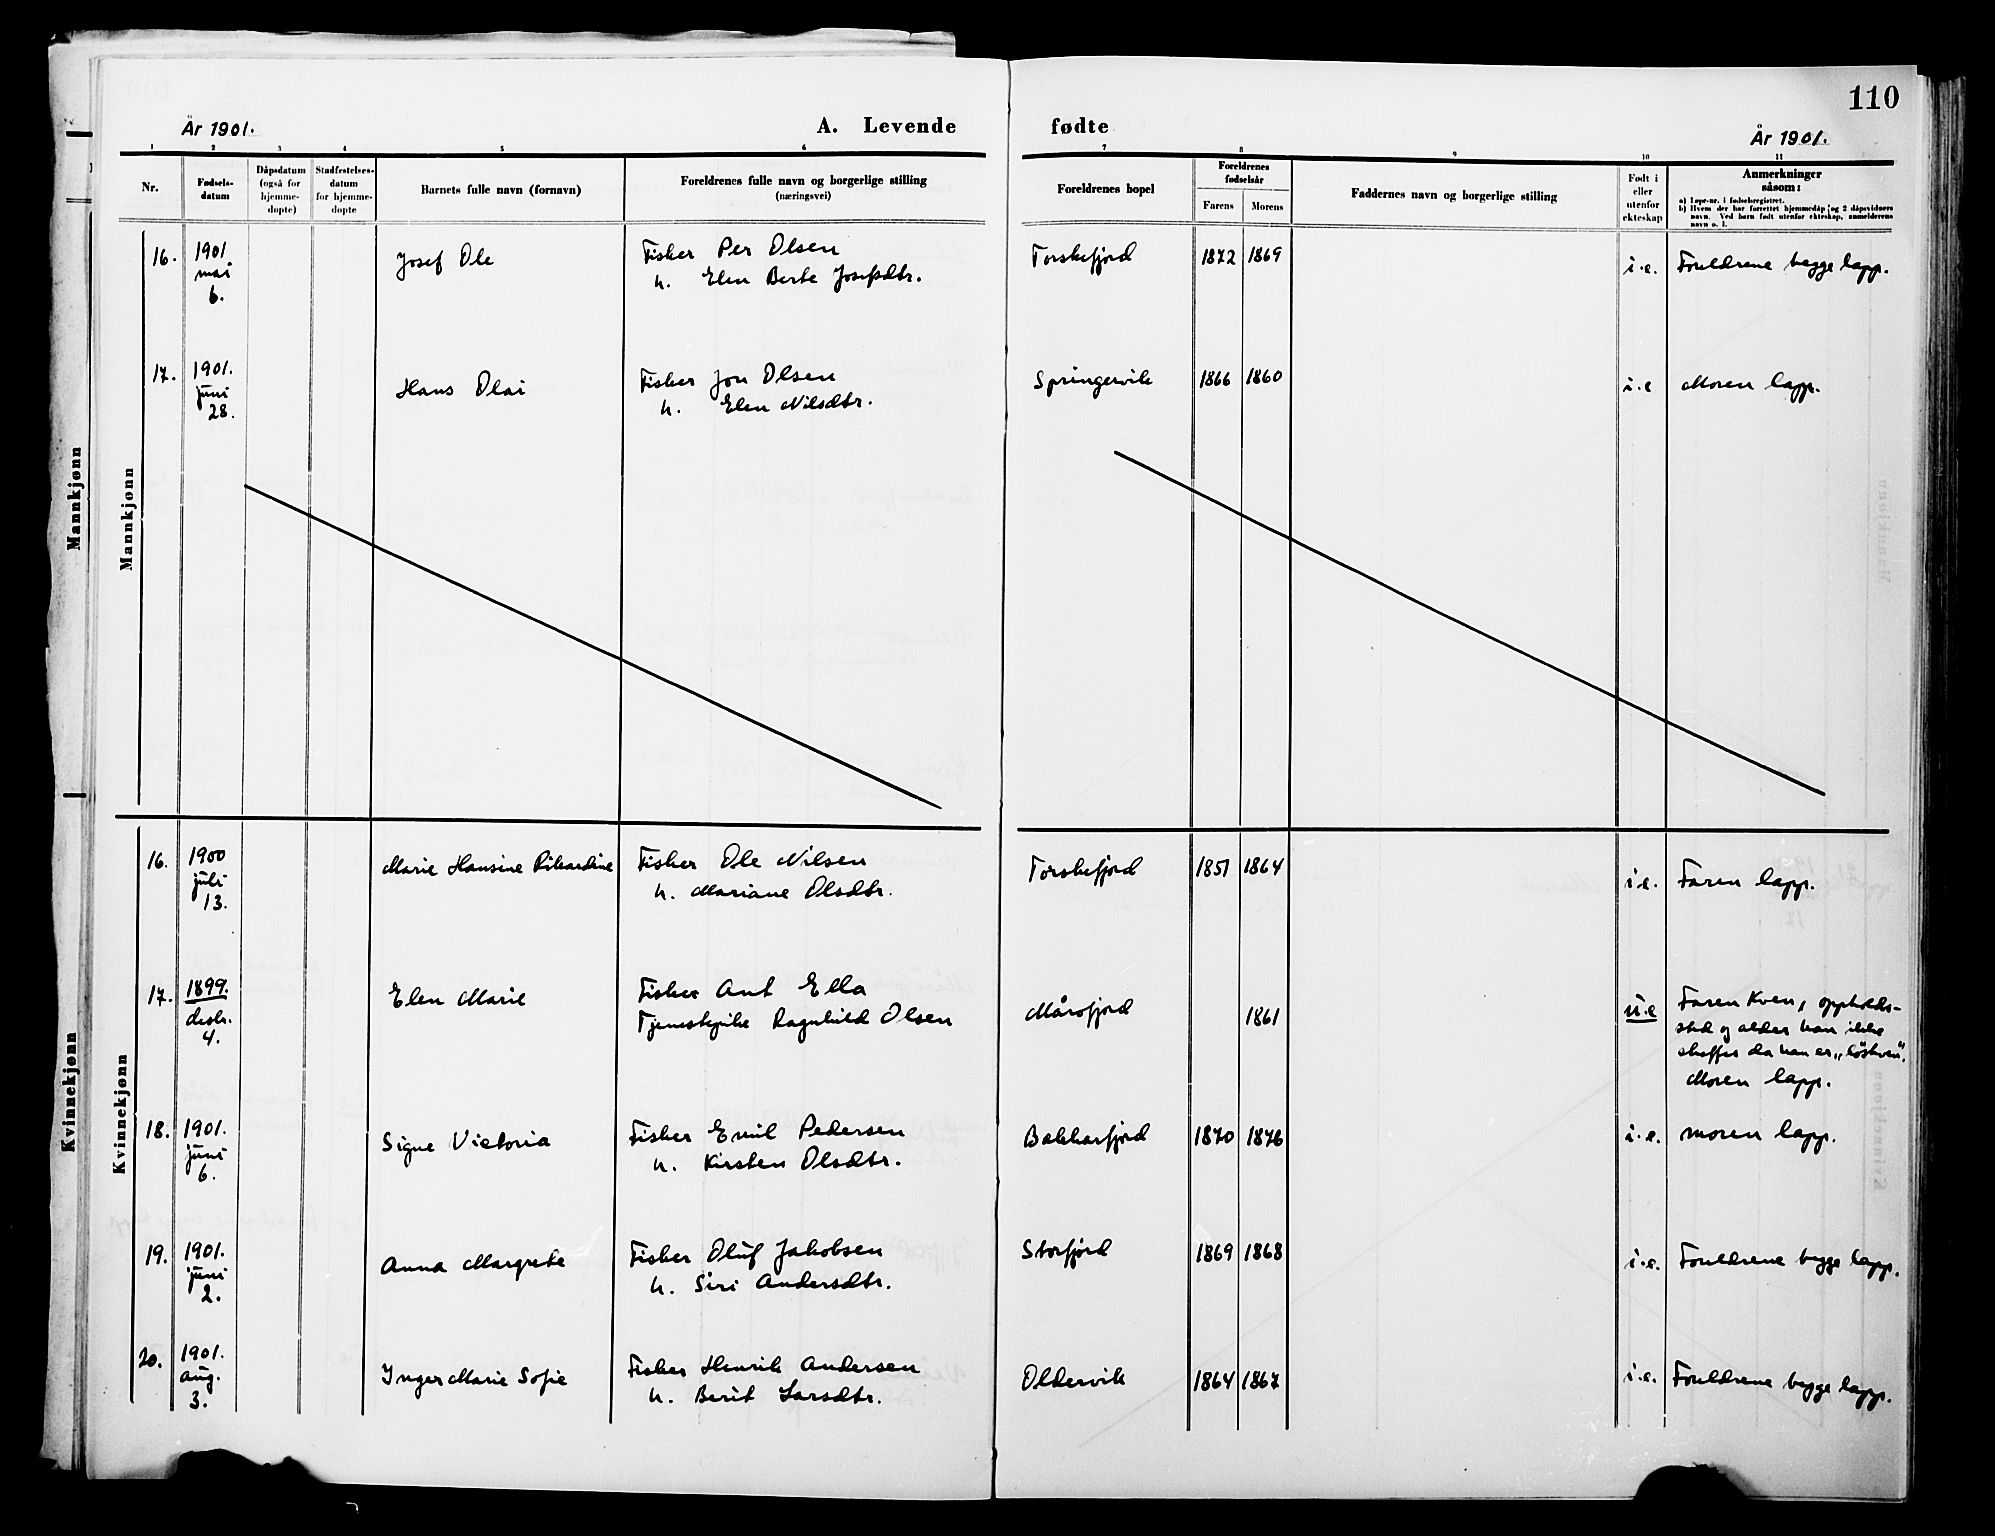 110
År 1901.
A. Levende fødte
År 1901.
1 2 3 4 5 6 7 8 9 10 11
Nr.
Fødsels-
datum
Dåpsdatum
(også for
hjemme-
døpte)
Stadfestelses-
datum
for hjemme-
døpte
Barnets fulle navn (fornavn)
Foreldrenes fulle navn og borgerlige stilling
(næringsvei)
Foreldrenes bopel
Foreldrenes
fødselsår
Farens Morens
Faddernes navn og borgerlige stilling
Født i
eller
utenfor
ekteskap
Anmerkninger
såsom:
a) Løpe-nr. i fødselsregistret.
b) Hvem der har forrettet hjemmedåp og 2 dåpsvidners
navn. Ved barn født utenfor ekteskap, anmelderens
navn o. l.
Mannkjønn
Mannkjønn
16. 1901. Josef Ole Fisker Per Olsen Torskefjord 1872 1869 i.e. Foreldrene begge lapp.
mai h. Elen Berte Josefsdtr.
6.
17. 1901. Hans Olai Fisker Jon Olsen Springervik 1866 1860 i.e Moren lapp.
juni h. Elen Nilsdtr.
28.
Kvinnekjønn
Kvinnekjønn
16. 1900 Marie Hansine Rikardine Fisker Ole Nilsen Torskefjord 1851 1864 i.e. Faren lapp.
juli h. Mariane Olsdtr.
13.
17. 1899. Elen Marie Fisker Ant Ella Mårøfjord 1861 u.e Faren Kven, oppholds-
desbr. Tjenestepike Ragnhild Olsen sted og alder kan ikke
4. skaffes da han er „løskven".
Moren lapp.
18. 1901. Signe Victoria Fisker Emil Pedersen Bakkarfjord 1870 1876 i.e. moren lapp.
juni h. Kirsten Olsdtr.
6.
19. 1901. Anna Margrete Fisker Oluf Jakobsen Storfjord 1869 1868 i.e. Foreldrene begge lapp.
juni h. Siri Andersdtr.
2.
20. 1901. Inger Marie Sofie Fisker Henrik Andersen Oldervik 1864 1867 i.e. Foreldrene begge lapp.
aug. h. Berit Larsdtr.
3.